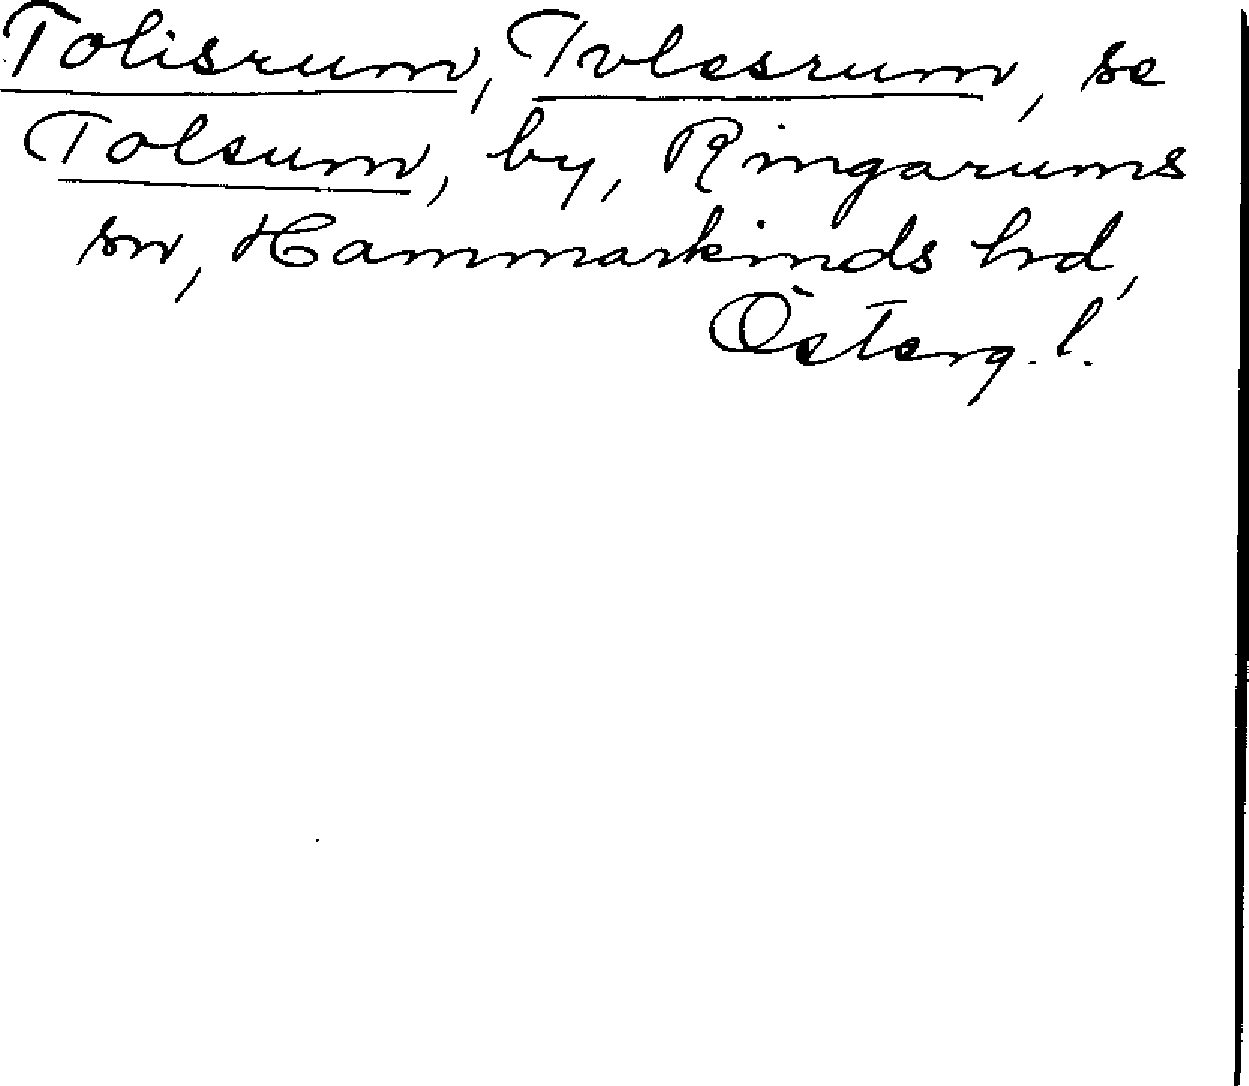 Tolisrum, Tvlesrum, se
Tolsum, by, Ringarums
sn, Hammarkinds hrd,
Österg. l.